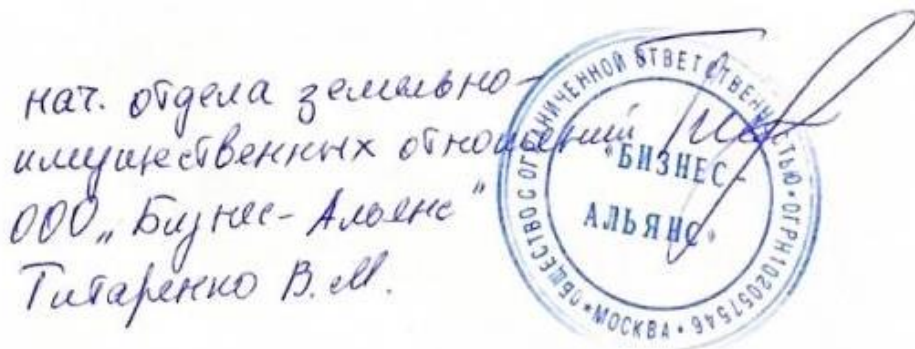 нач. отдела земельно-
имущественных отношений
ООО „Бизнес-Альянс"
Титаренко В.М.
ОБЩЕСТВО С ОГРАНИЧЕННОЙ ОТВЕТСТВЕННОСТЬЮ • ОГРН 102057546 • МОСКВА •
"БИЗНЕС-
АЛЬЯНС"